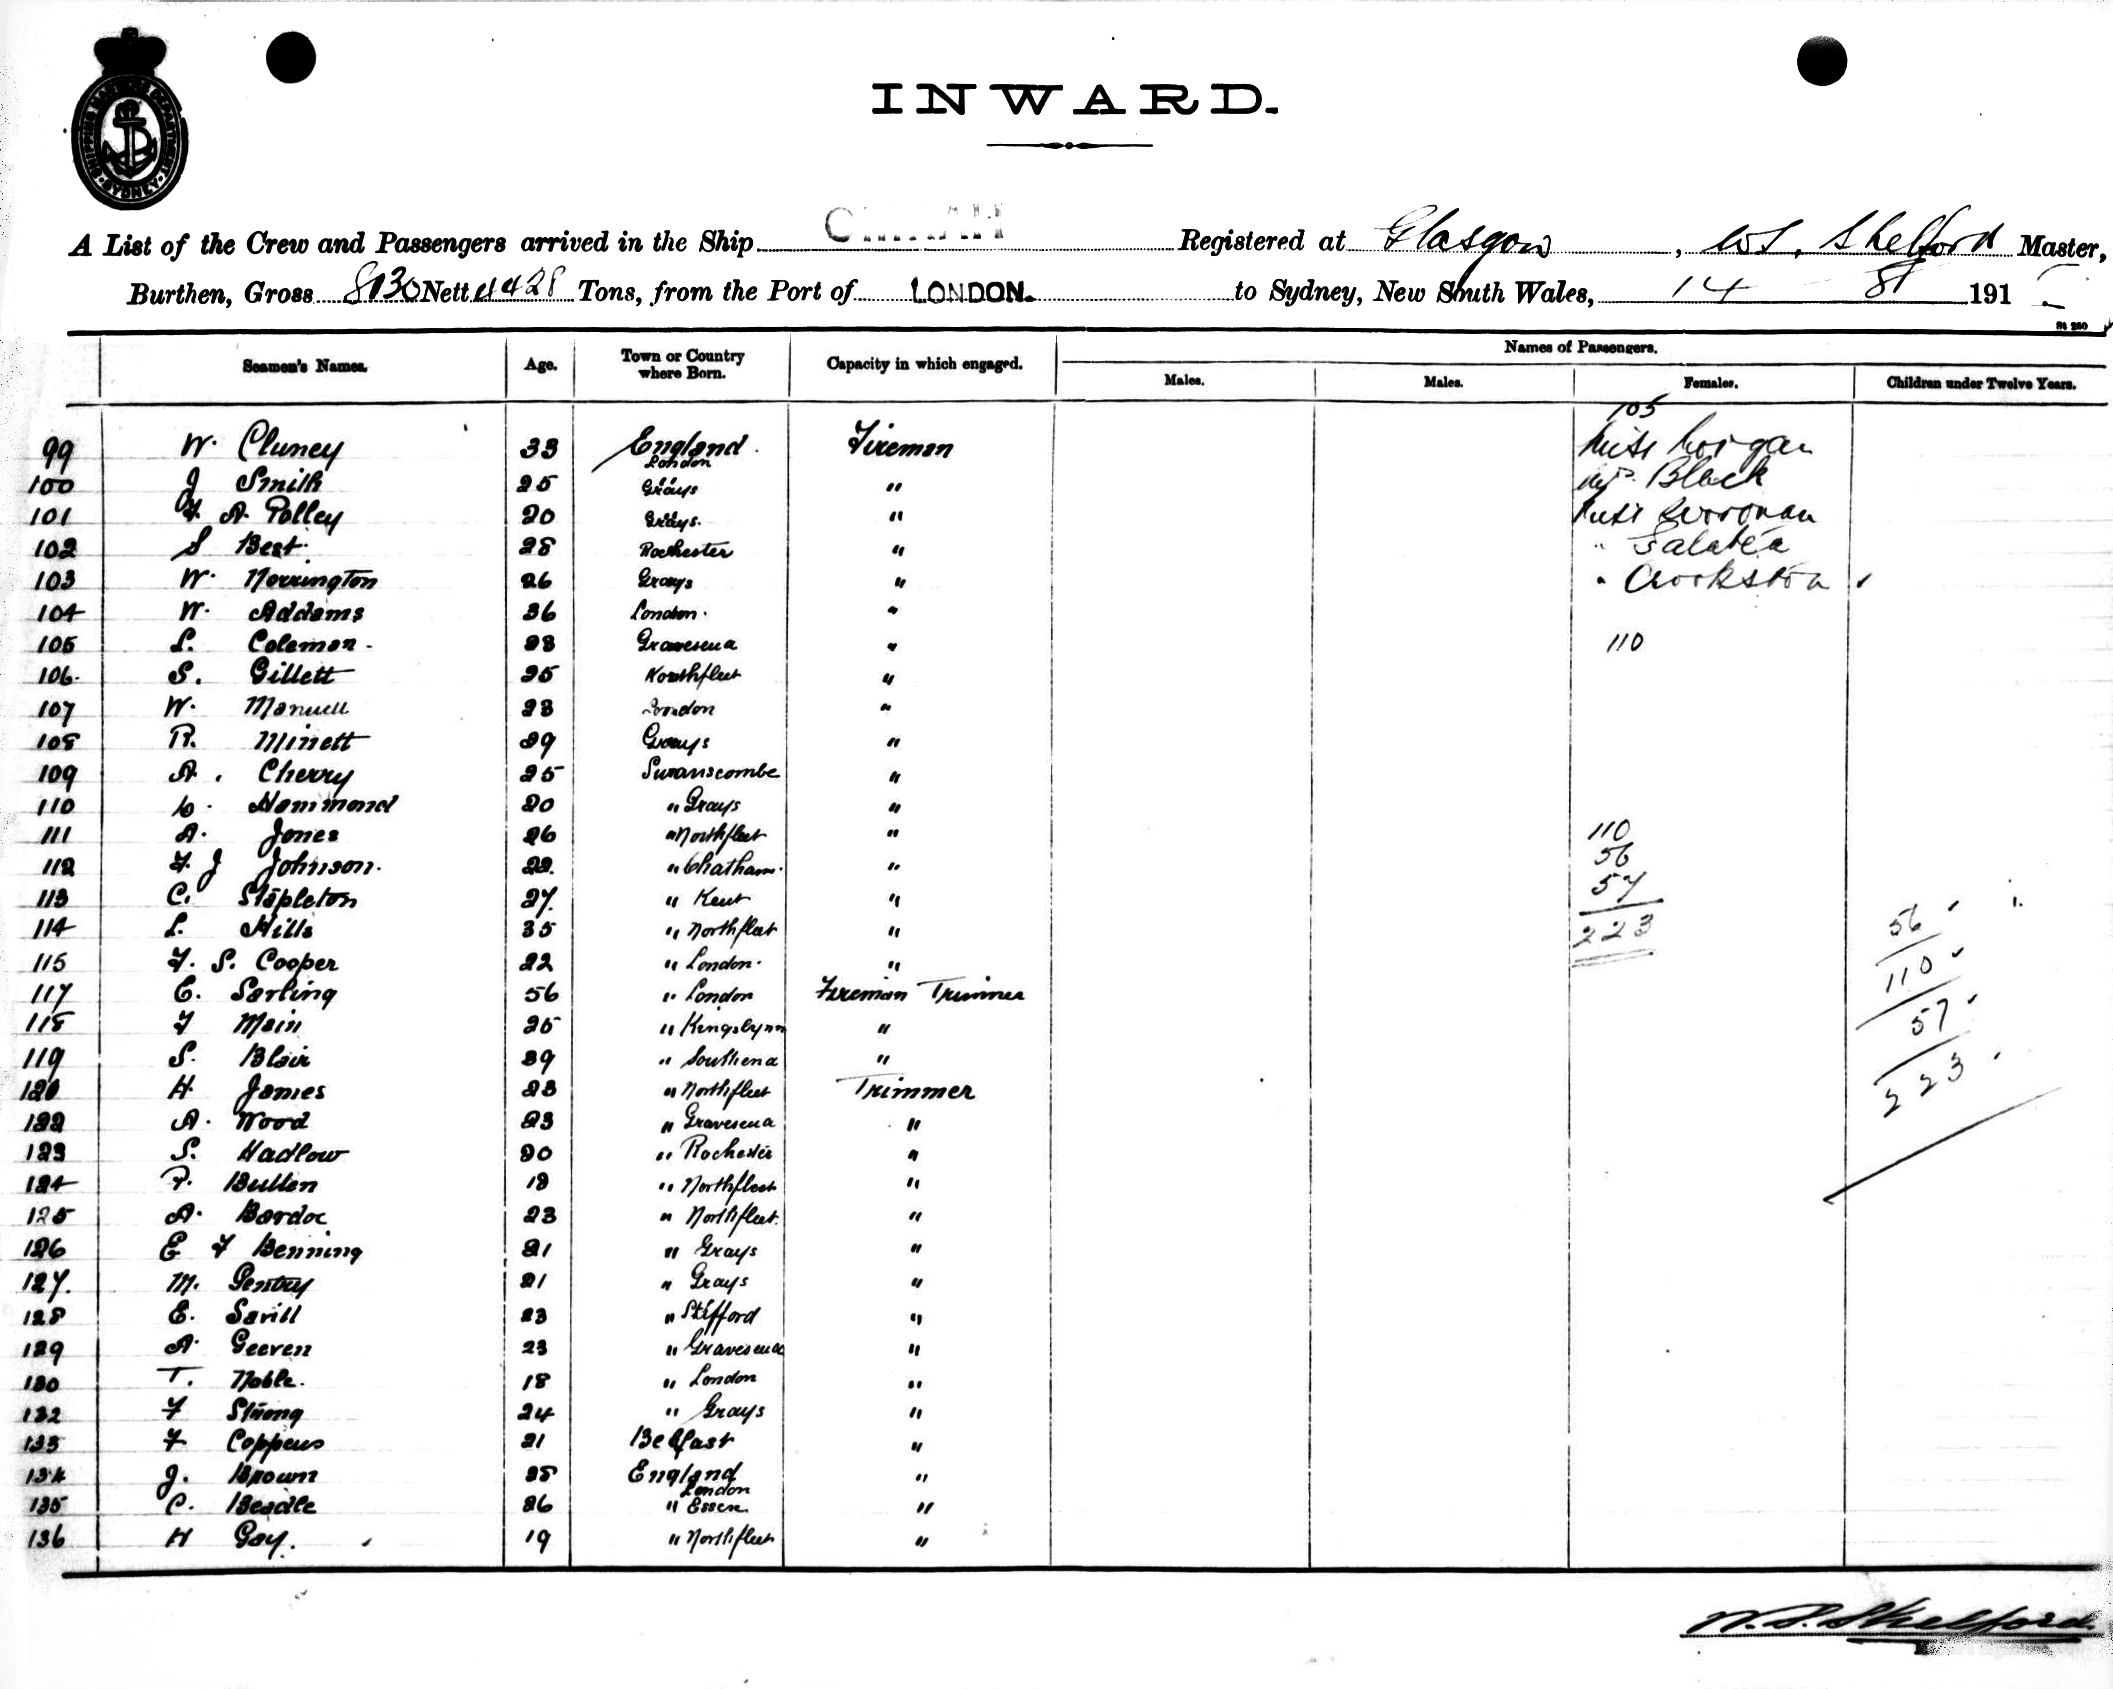 SHIPPING MASTER'S DEPARTMENT
SYDNEY
INWARD.
A List of the Crew and Passengers arrived in the Ship Registered at Glasgow, W.S. Shelford Master,
Burthen, Gross 8130 Nett 4428 Tons, from the Port of LONDON. to Sydney, New South Wales, 14 8 191
St 280
Seamen's Names. Age. Town or Country where Born. Capacity in which engaged. Names of Passengers.
Males. Males. Females. Children under Twelve Years.
105
99 W. Cluney 33 England London Fireman Miss Morgan
100 J Smith 25 " Grays " Mrs. Black
101 F. A. Polley 20 " Grays. " Miss
102 S Best 28 Rochester " " Galatea
103 W. Norrington 26 Grays " " Crookston
104 W. Addams 36 London. "
105 L. Coleman. 23 Gravesend " 110
106. S. Gillett 25 Northfleet "
107 W. Manuell 23 London "
108 R. Minett 29 Grays "
109 A. Cherry 25 Swanscombe "
110 Hammond 20 " Grays "
111 A. Jones 26 " Northfleet " 110
112 F. J Johnson. 22. " Chatham. " 56
113 C. Stapleton 27. " Kent " 57
114 L. Hills 35 " Northfleet " 223 56
115 F. S. Cooper 22 " London. " 110
117 C. Sarling 56 " London Fireman Trimmer
118 F Main 25 " Kingslynn " 57
119 S. Blair 39 " Southend "
120 H. James 23 " Northfleet Trimmer 223
122 A. Wood 23 " Gravesend "
123 S. Hadlow 20 " Rochester "
124 P. Bullen 19 " Northfleet "
125 A. Bardoc 23 " Northfleet. "
126 E F Benning 21 " Grays "
127. M. Gentry 21 " Grays "
128 E. Savill 23 " Stifford "
129 A. Geeven 23 " Gravesend "
130 T. Noble. 18 " London "
132 F Strong 24 " Grays "
133 F Coppens 21 Belfast "
134 J. Brown 25 England London "
135 C. Beadle 26 " Essex "
136 H Gay. 19 " Northfleet "
W. S. Shelford.